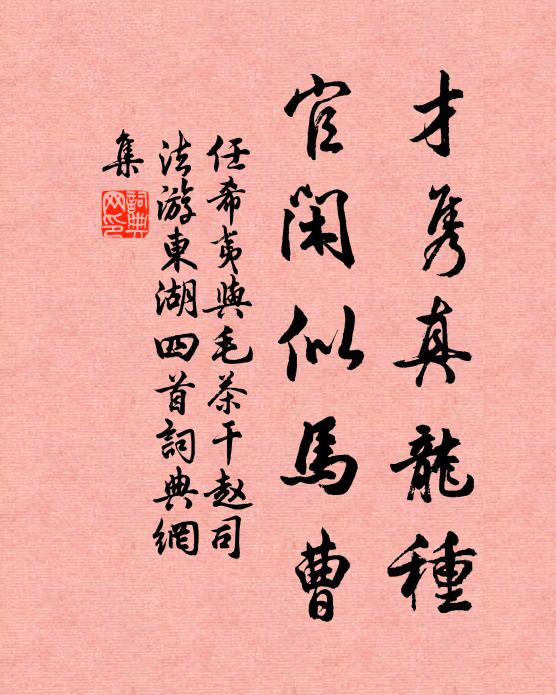 才隽真龍種
官閑似馬曹
任希夷與毛茶干赵司
法游東湖四首詞典網
集
詞典網印